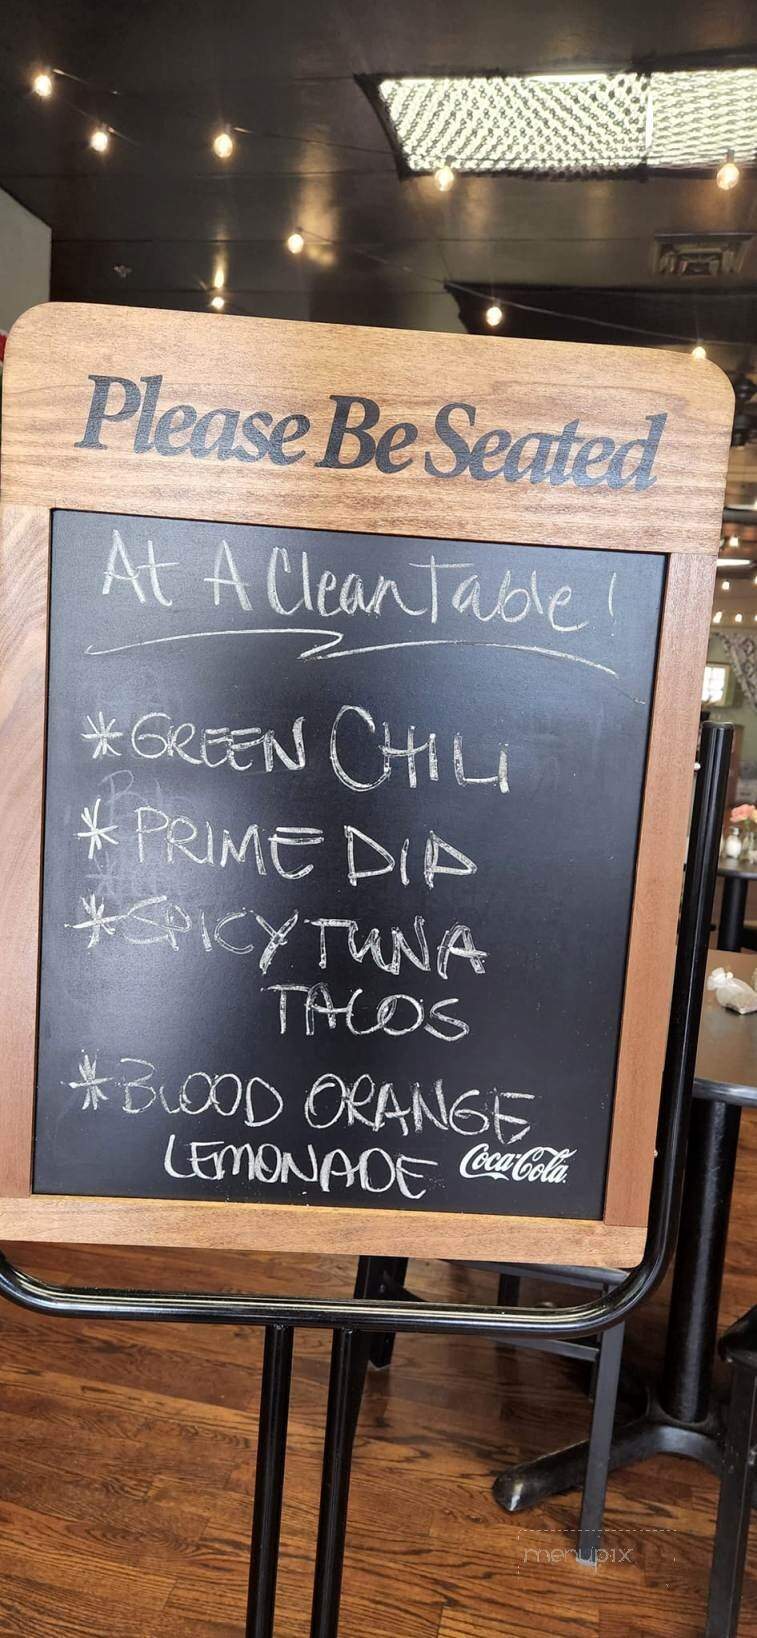 Please Be Seated
At A Clean Table!
*GREEN CHILI
*PRIME DIP
*SPICY TUNA
TACOS
*BLOOD ORANGE
LEMONADE Coca-Cola
menupix